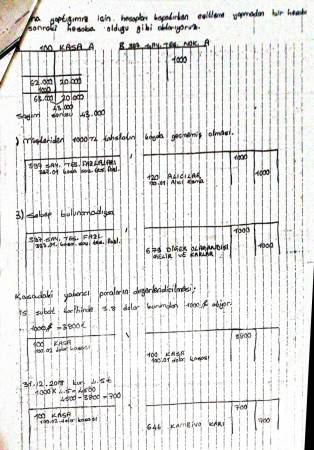 yaptığımız için. hesapları kapatırken eşitleme yapmadan bir hesabı
sonraki hesaba olduğu gibi aktarıyoruz.
100 KASA A
B 397 SAY. TES. NOK. A
1000
62.000 20.000
1000
63.000 20.000
43.000
Sayım sonucu 43.000
) Müşteriden 1000 TL tahsilatın kayda geçmemiş olması.
397 SAY. TES. FAZLALARI
1000
120 ALICILAR
1000
3) Sebep bulunamadıysa
397 SAY. TES. FAZL.
1000
679 DİĞER OLAĞANDIŞI
GELİR VE KARLAR
1000
Kasadaki yabancı paraların değerlendirilmesi;
15 şubat tarihinde 3.8 dolar kurundan 1000 $ alıyor.
1000 $ = 3800 ₺
100 KASA
100.02 dolar kasası
3800
100 KASA
100.01 dolar kasası
31.12.2018 kur 4.5 ₺
1000 X 4.5 = 4500
4500 - 3800 = 700
100 KASA
100.02 dolar kasası
700
646 KAMBİYO KARI
700